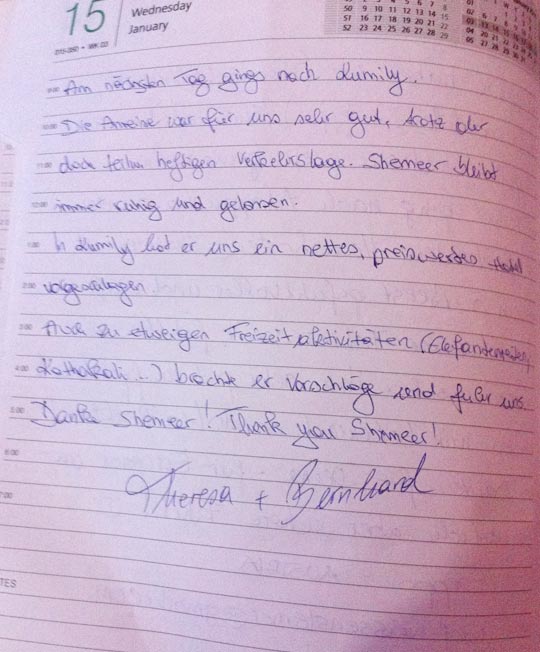 15
Wednesday
January
015-350 • WK 03
50 9 10 11 12 13 14 15
51 16 17 18 19 20 21 22
52 23 24 25 26 27 28 29
9:00 Am nächsten Tag gings nach Kumily.
10:00 Die Anreise war für uns sehr gut, trotz der
11:00 doch teilw. heftigen Verkehrslage. Shemeer bleibt
12:00 immer ruhig und gelassen.
1:00 In Kumily hat er uns ein nettes, preiswertes Hotel
2:00 vorgeschlagen.
3:00 Auch zu etweigen Freizeitaktivitäten (Elefantenreiten,
4:00 Kathakali...) brachte er Vorschläge und fuhr uns.
5:00 Danke Shemeer! Thank you Shemeer!
6:00
Theresa + Bernhard
7:00
TES